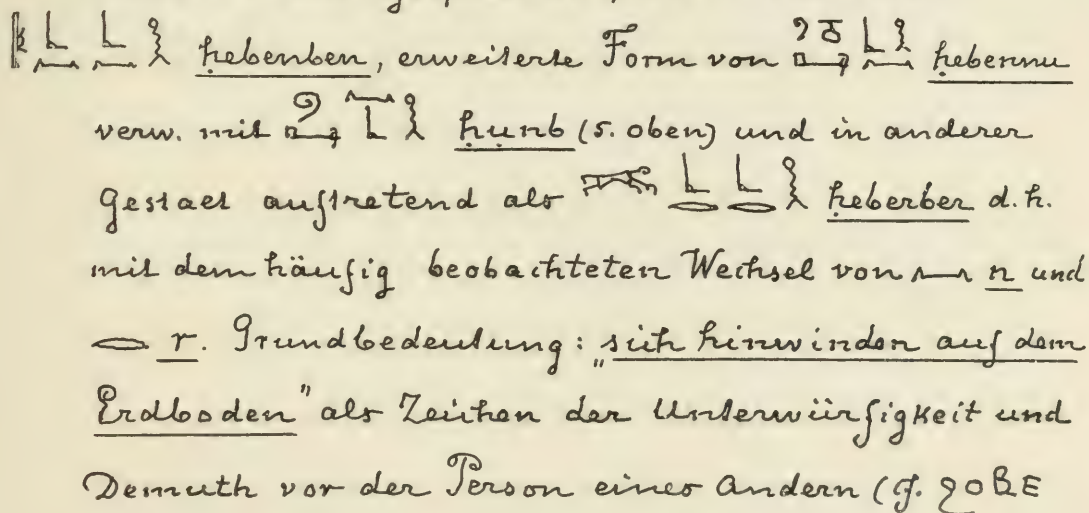 ḥebenben, erweiterte Form von ḥebennu
verw. mit ḥunb (s. oben) und in anderer
Gestalt auftretend als ḥeberber d.h.
mit dem häufig beobachteten Wechsel von n und
r. Grundbedeutung: „sich hinwinden auf dem
Erdboden" als Zeichen der Unterwürfigkeit und
Demuth vor der Person eines Andern (cf. ϩⲟⲃⲉ